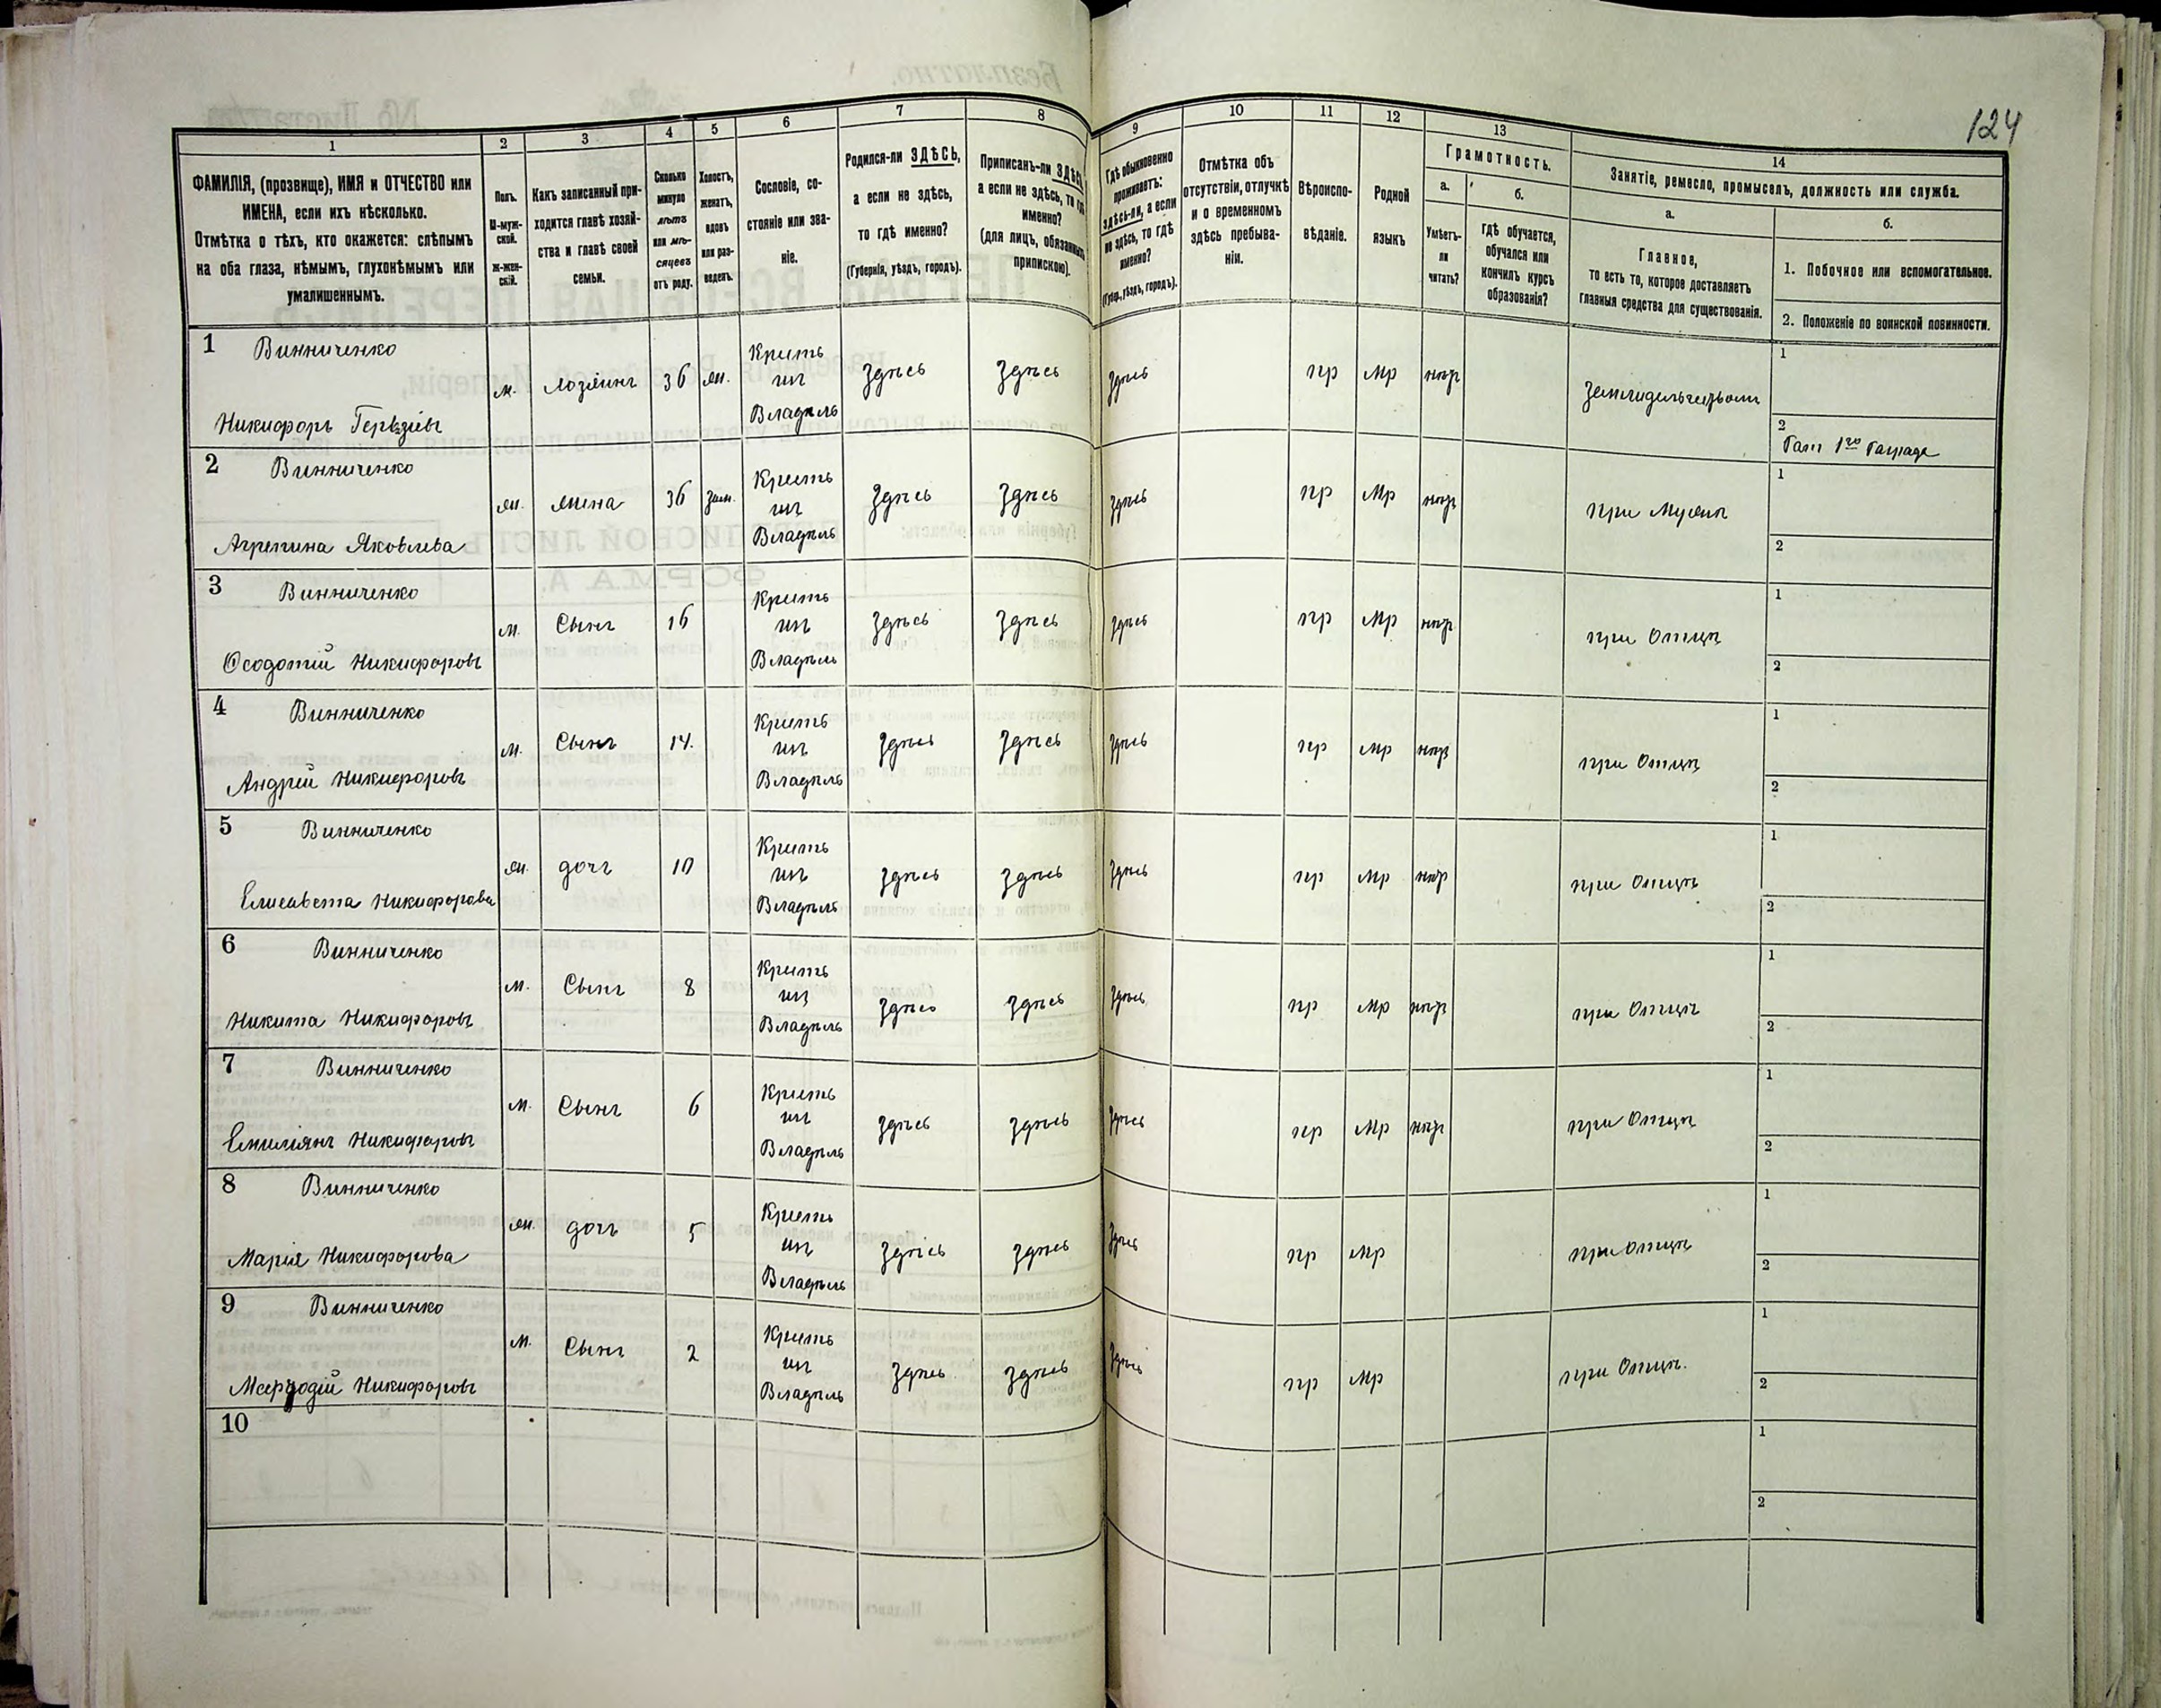 124
1
2
3
4
5
6
7
8
9
10
11
12
13
14
ФАМИЛІЯ, (прозвище), ИМЯ и ОТЧЕСТВО или
ИМЕНА, если ихъ нѣсколько.
Отмѣтка о тѣхъ, кто окажется: слѣпымъ
на оба глаза, нѣмымъ, глухонѣмымъ или
умалишеннымъ.
Полъ.
М-муж-
ской.
Ж-жен-
скій.
Какъ записанный при-
ходится главѣ хозяй-
ства и главѣ своей
семьи.
Сколько
минуло
лѣтъ
или мѣ-
сяцевъ
отъ роду.
Холостъ,
женатъ,
вдовъ
или раз-
веденъ.
Сословіе, со-
стояніе или зва-
ніе.
Родился-ли ЗДѢСЬ,
а если не здѣсь,
то гдѣ именно?
(Губернія, уѣздъ, городъ).
Приписанъ-ли ЗДѢСЬ,
а если не здѣсь, то гдѣ
именно?
(для лицъ, обязанныхъ
припискою).
Гдѣ обыкновенно
проживаетъ:
здѣсь-ли, а если
не здѣсь, то гдѣ
именно?
(Губер., уѣздъ, городъ).
Отмѣтка объ
отсутствіи, отлучкѣ
и о временномъ
здѣсь пребыва-
ніи.
Вѣроиспо-
вѣданіе.
Родной
языкъ
Грамотность.
а.
б.
Умѣетъ-
ли
читать?
Гдѣ обучается,
обучался или
кончилъ курсъ
образованія?
Занятіе, ремесло, промыселъ, должность или служба.
а.
б.
Главное,
то есть то, которое доставляетъ
главныя средства для существованія.
1. Побочное или вспомогательное.
2. Положеніе по воинской повинности.
1 Винниченко
Никифоръ Гервзіевъ
м. хозяинъ 36 жи. Крить изъ Владѣль здѣсь здѣсь здѣсь пр Мр нѣтъ Земледѣльчествомъ
1
2
1го
2 Винниченко
Агрепина Яковлева
жи. жена 36 зам. Кресть изъ Владѣль здѣсь здѣсь здѣсь пр Мр нѣтъ при Мужѣ
1
2
3 Винниченко
Ѳеодотій Никифоровъ
м. Сынъ 16 Кресть изъ Владѣль здѣсь здѣсь здѣсь пр Мр нѣтъ при Отцѣ
1
2
4 Винниченко
Андрей Никифоровъ
м. Сынъ 14. Кресть изъ Владѣль здѣсь здѣсь здѣсь пр Мр нѣтъ при Отцѣ
1
2
5 Винниченко
Елисавета Никифорова
жи. дочь 10 Кресть изъ Владѣль здѣсь здѣсь здѣсь пр Мр нѣтъ при Отцѣ
1
2
6 Винниченко
Никита Никифоровъ
м. Сынъ 8 Кресть изъ Владѣль здѣсь здѣсь здѣсь пр Мр нѣтъ при Отцѣ
1
2
7 Винниченко
Емиліянъ Никифоровъ
м. Сынъ 6 Кресть изъ Владѣль здѣсь здѣсь здѣсь пр Мр нѣтъ при Отцѣ
1
2
8 Винниченко
Марія Никифорова
жи. дочь 5 Кресть изъ Владѣль здѣсь здѣсь здѣсь пр Мр при Отцѣ
1
2
9 Винниченко
Никифоровъ
м. Сынъ 2 Кресть изъ Владѣль здѣсь здѣсь здѣсь пр Мр при Отцѣ.
1
2
10
1
2